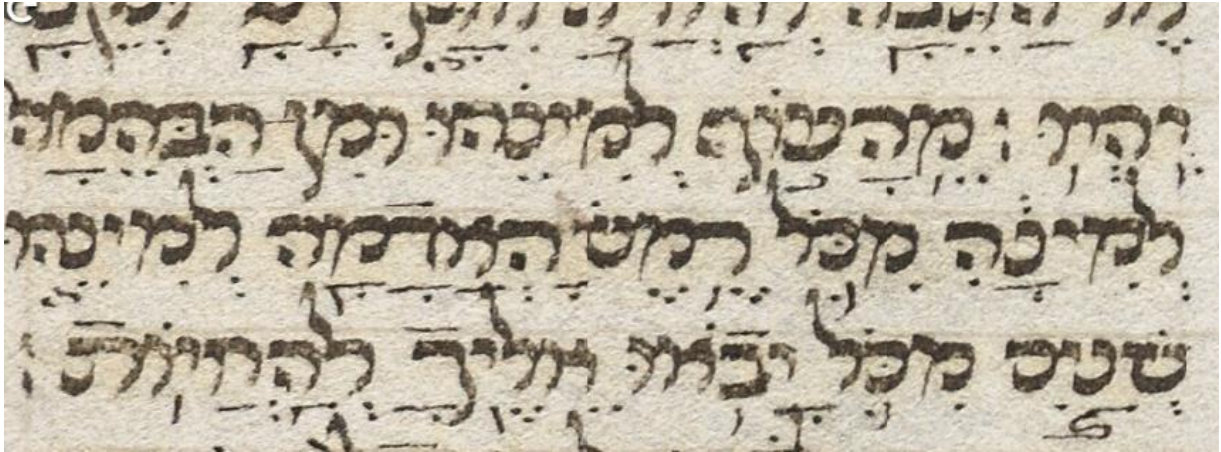 יהיו׃ מהעוף למינהו ומן הבהמה
למינה מכל רמש האדמה למינהו
שנים מכל יבאו אליך להחיות׃